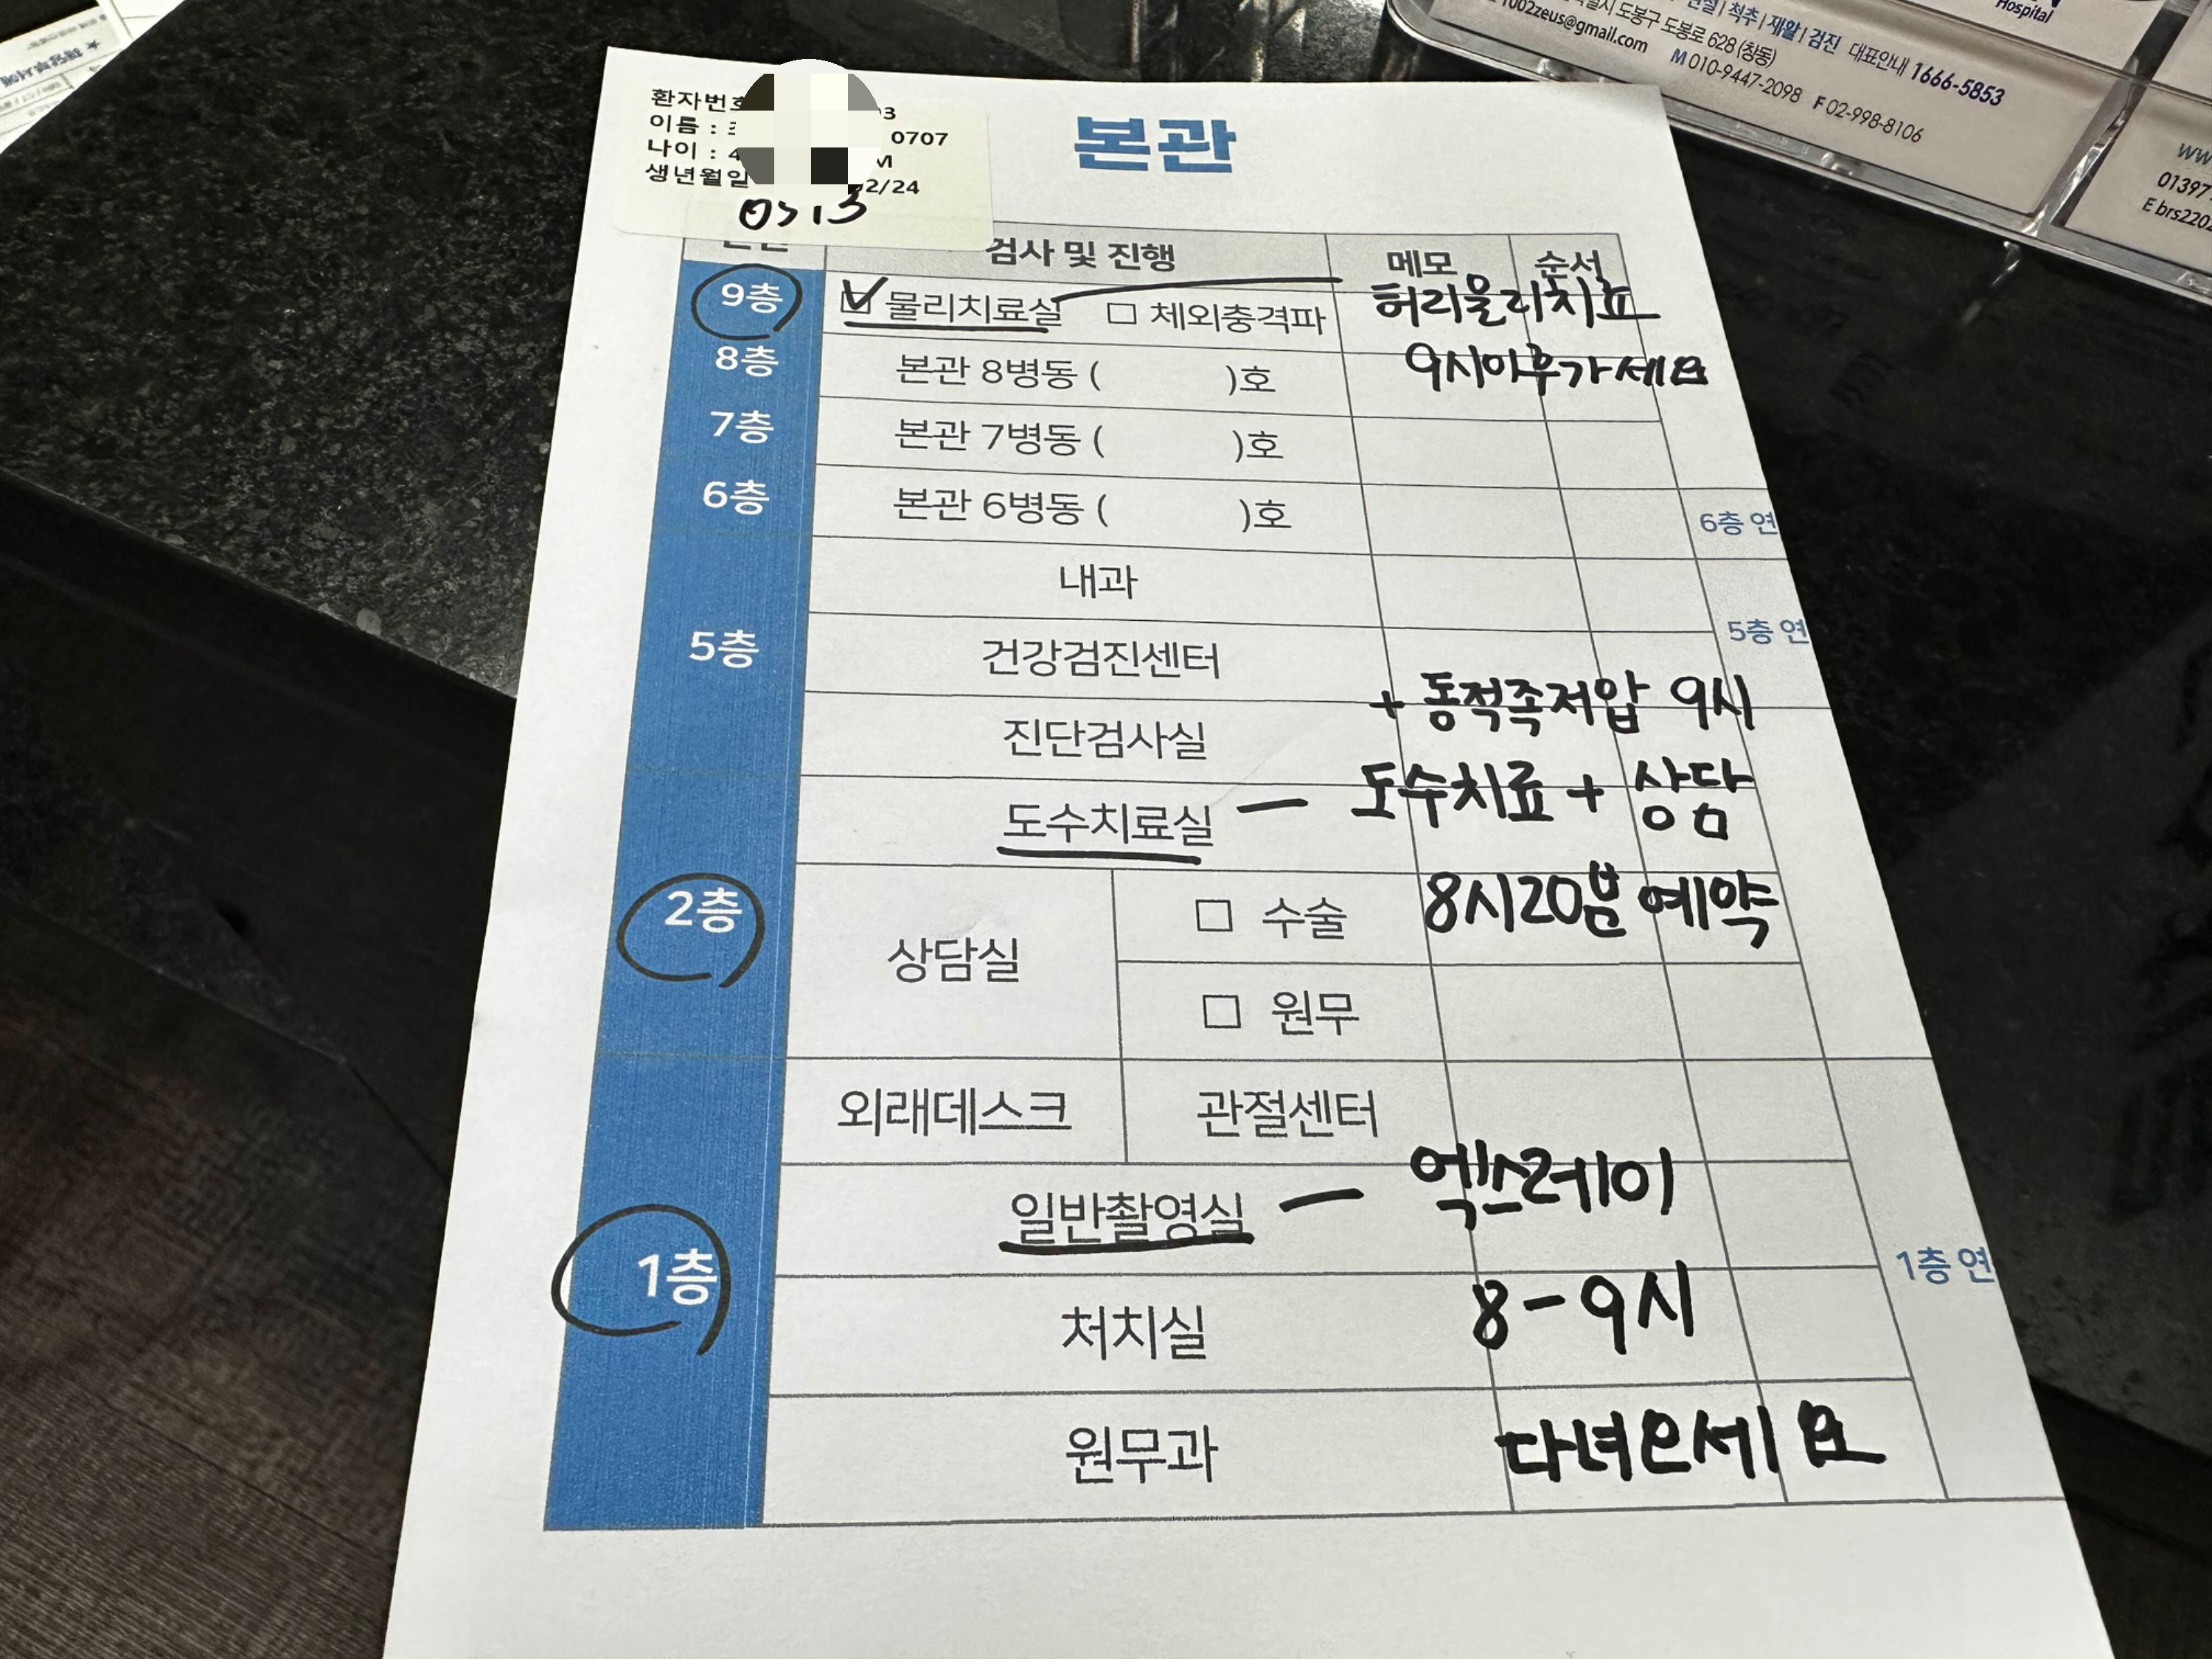 환자번호 03
이름 : 0707
나이 : 4 M
생년월일 02/24
0513
본관
검사 및 진행 메모 순서
9층 ☑ 물리치료실 □ 체외충격파 허리물리치료
9시이후가세요
8층 본관 8병동 ( )호
7층 본관 7병동 ( )호
6층 본관 6병동 ( )호
6층 연
내과
5층 건강검진센터
5층 연
진단검사실
+ 동적족저압 9시
도수치료실 - 도수치료 + 상담
8시20분 예약
2층 상담실 □ 수술
□ 원무
외래데스크 관절센터
1층 일반촬영실 - 엑스레이
1층 연
처치실 8-9시
원무과 다녀오세요
Hospital
척추 | 재활 | 검진 대표안내 1666-5853
도봉구 도봉로 628 (창동)
1002zeus@gmail.com M 010-9447-2098 F 02-998-8106
01397
E brs220